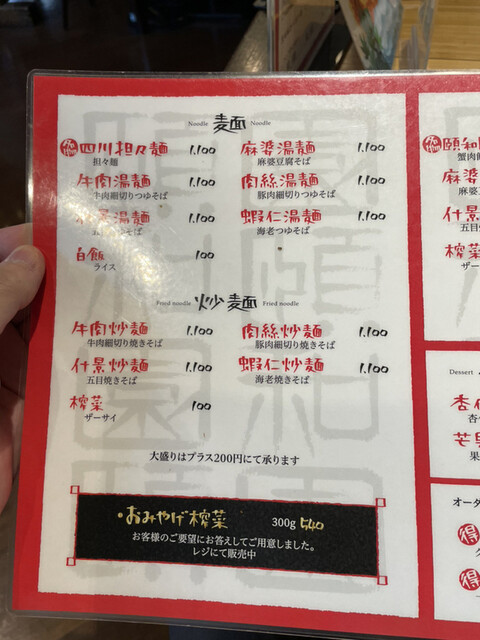 Noodle 麺 Noodle
四川担々麺 1,100
担々麺
麻婆湯麺 1,100
麻婆豆腐そば
牛肉湯麺 1,100
牛肉細切りつゆそば
肉絲湯麺 1,100
豚肉細切りつゆそば
什景湯麺 1,100
五目つゆそば
蝦仁湯麺 1,100
海老つゆそば
白飯 100
ライス
Fried noodle 炒麺 Fried noodle
牛肉炒麺 1,100
牛肉細切り焼きそば
肉絲炒麺 1,100
豚肉細切り焼きそば
什景炒麺 1,100
五目焼きそば
蝦仁炒麺 1,100
海老焼きそば
榨菜 100
ザーサイ
大盛りはプラス200円にて承ります
・おみやげ榨菜 300g 540
お客様のご要望にお答えしてご用意しました。
レジにて販売中
頤和
蟹肉
麻婆
麻婆
什景
五目
榨菜
ザー
Dessert
杏仁
杏
芒果
オーダ
得
得